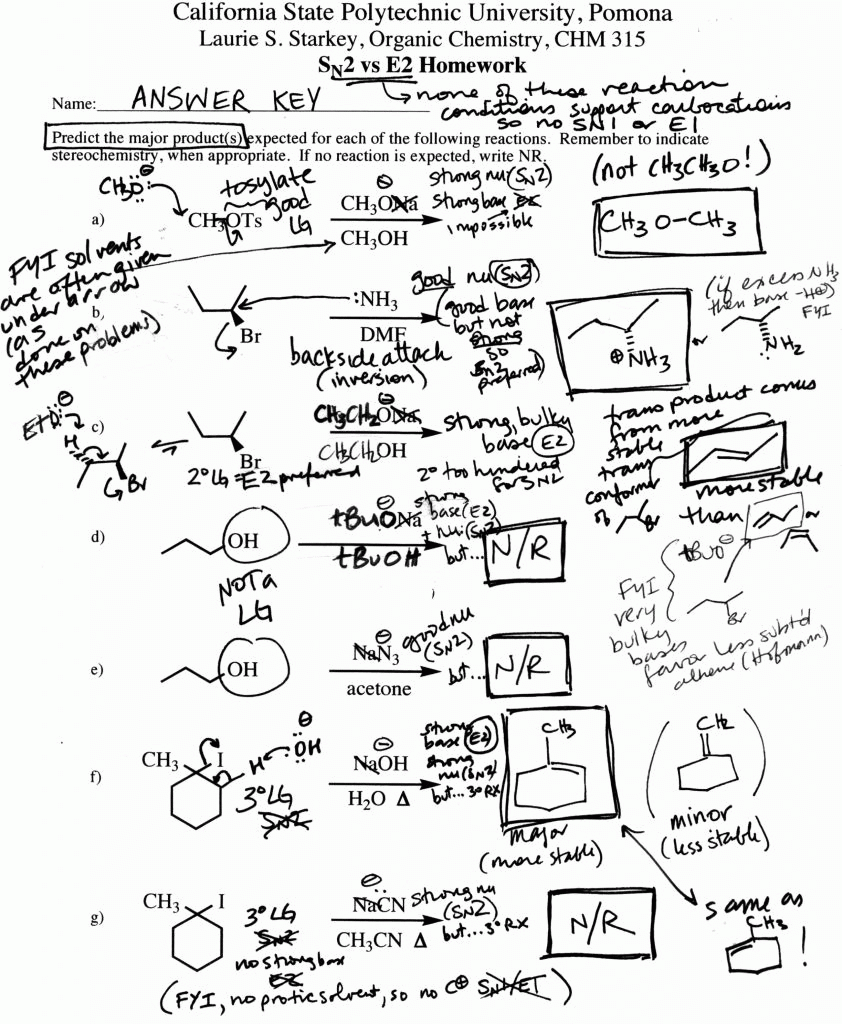 California State Polytechnic University, Pomona
Laurie S. Starkey, Organic Chemistry, CHM 315
SN2 vs E2 Homework
Name: ANSWER KEY
→ none of these reaction
conditions support carbocations
so no SN1 or E1
Predict the major product(s) expected for each of the following reactions. Remember to indicate
stereochemistry, when appropriate. If no reaction is expected, write NR.
a)
CH3Ö:⊖
tosylate
good
LG
CH3OTs
CH3ONa
⊖
CH3OH
strong nu: (SN2)
strong base E2
impossible
(not CH3CH3O!)
CH3O-CH3
FYI solvents
are often given
under arrow
(as
done on
these problems)
b)
Br
:NH3
DMF
backside attack
(inversion)
good nu (SN2)
(good base
but not
strong
so
SN2
preferred)
⊕NH3
or
NH2
(if excess NH3
then base -H⊕)
FYI
c)
EtO:⊖
H
Br
⇌
Br
2° LG = E2 preferred
CH3CH2ONa
⊖
CH3CH2OH
strong, bulky
base E2
2° too hindered
for SN2
trans product comes
from more
stable
trans
conformer
of
Br
more stable
than
or
d)
OH
NOT a
LG
tBuONa
⊖
tBuOH
strong
base (E2)
+ nu: (SN2)
but...
N/R
tBuO⊖
Br
FYI
very
bulky
bases
favor less subt'd
alkene (Hofmann)
e)
OH
NaN3
⊖
acetone
good nu
(SN2)
but...
N/R
f)
CH3
I
H
ÖH
⊖
3° LG
SN2
NaOH
⊖
H2O Δ
strong
base (E2)
strong
nu (SN2)
but... 3° RX
CH3
major
(more stable)
CH2
minor
(less stable)
same as
CH3
!
g)
CH3
I
3° LG
SN2
no strong base
E2
NaCN
⊖
CH3CN Δ
strong nu
(SN2)
but...3° RX
N/R
(FYI, no protic solvent, so no C⊕ SN1/E1)